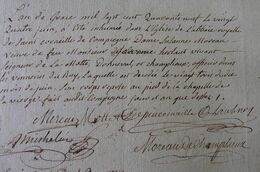 L'an de Grace mil sept cent Quarante neuf le vingt
quatre juin, a été inhumée dans l'Eglise de l'abbaye royalle
de Saint Corneille de Compiegne Dame Susanne Moreau
veuve de feu Monsieur herlaut vivant
seigneur de La Motte, et champlieux, officier dans
la venerie du Roy, laquelle est decedée le vingt trois dudit
mois de juin. Son corps repose au pied de la chapelle de la
vierge. fait audit Compiegne jour et an que dessus.
Moreau
Michelin
Moreau de Champlieux